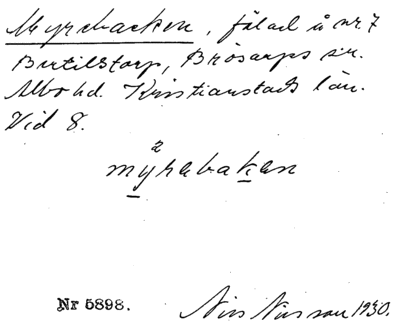 Myrebacken, fälad å nr 7
Bertilstorp, Brösarps sn.
Albo hd. Kristianstads län.
Vid 8.
2
myrabakan
Nr 5898.
Nils Nilsson 1930.